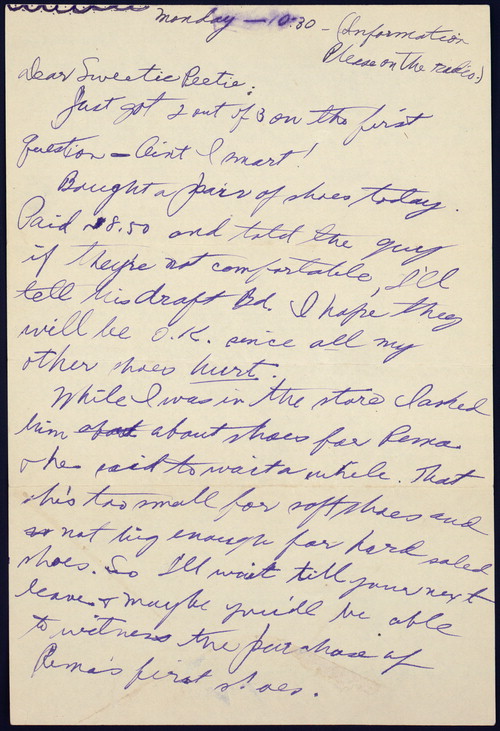 Monday — 10:30 - (Information
Please on the radio.)
Dear Sweetie Peetie:
Just got 2 out of 3 on the first
question — Aint I smart!
Bought a pair of shoes today.
Paid 8.50 and told the guy
if they're not comfortable, I'll
tell his draft Bd. I hope they
will be O.K. since all my
other shoes hurt.
While I was in the store I asked
him about about shoes for Rema
& he said to wait a while. That
she's too small for soft shoes and
not big enough for hard soled
shoes. So I'll wait till your next
leave & maybe you'll be able
to witness the purchase of
Rema's first shoes.